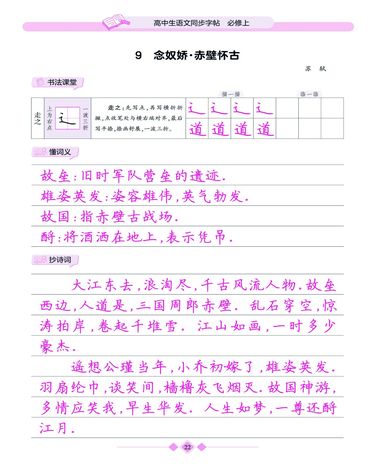 高中生语文同步字帖 必修上
9 念奴娇·赤壁怀古
苏 轼
书法课堂
走之
上为右点
辶
一波三折
走之:先写点,再写横折折撇,点收笔处与横右端对齐,最后写平捺,捺画舒展,一波三折。
描一描 临一临
辶 辶 辶 辶
道 道 道 道
懂词义
故垒:旧时军队营垒的遗迹.
雄姿英发:姿容雄伟,英气勃发.
故国:指赤壁古战场.
酹:将酒洒在地上,表示凭吊.
抄诗词
大江东去,浪淘尽,千古风流人物.故垒
西边,人道是,三国周郎赤壁. 乱石穿空,惊
涛拍岸,卷起千堆雪. 江山如画,一时多少
豪杰.
遥想公瑾当年,小乔初嫁了,雄姿英发.
羽扇纶巾,谈笑间,樯橹灰飞烟灭.故国神游,
多情应笑我,早生华发. 人生如梦,一尊还酹
江月.
22